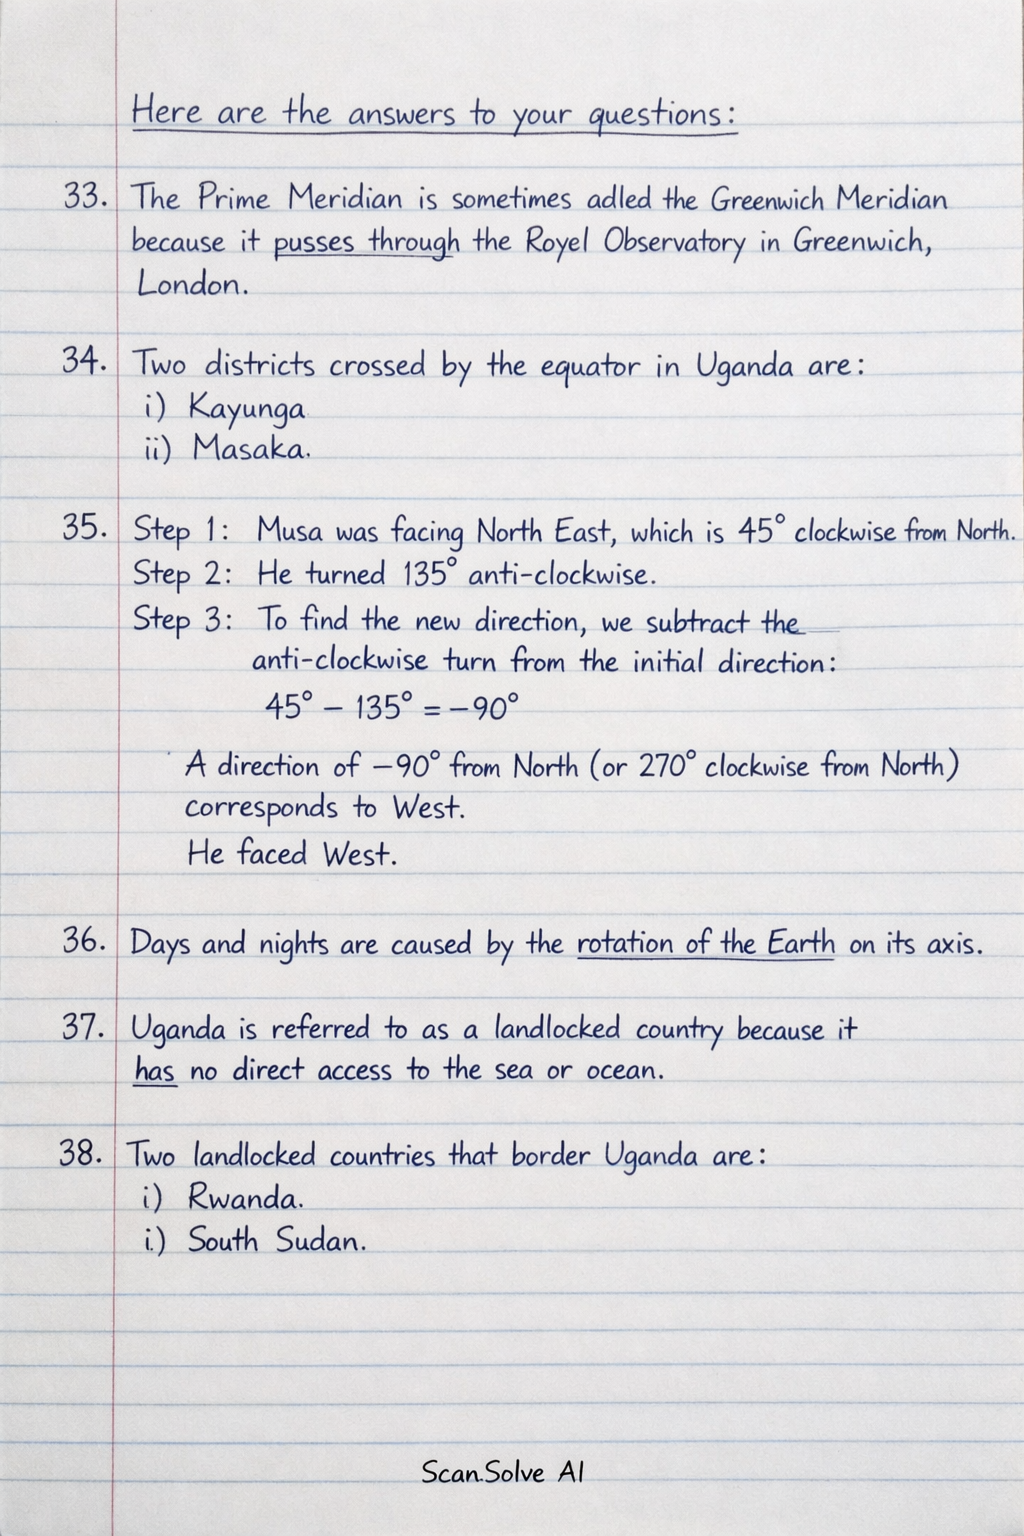 Here are the answers to your questions:
33. The Prime Meridian is sometimes adled the Greenwich Meridian
because it pusses through the Royel Observatory in Greenwich,
London.
34. Two districts crossed by the equator in Uganda are:
i) Kayunga
ii) Masaka.
35. Step 1: Musa was facing North East, which is 45° clockwise from North.
Step 2: He turned 135° anti-clockwise.
Step 3: To find the new direction, we subtract the
anti-clockwise turn from the initial direction:
45° – 135° = –90°
A direction of –90° from North (or 270° clockwise from North)
corresponds to West.
He faced West.
36. Days and nights are caused by the rotation of the Earth on its axis.
37. Uganda is referred to as a landlocked country because it
has no direct access to the sea or ocean.
38. Two landlocked countries that border Uganda are:
i) Rwanda.
i.) South Sudan.
Scan.Solve AI